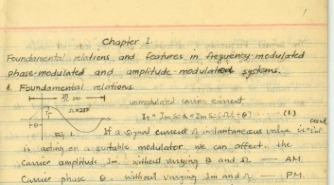 1
Chapter 1
Foundamental relations and features in frequency-modulated
phase-modulated and amplitude-modulated systems.
1. Foundamental relations
unmodulated carrier current
(1)
If a signal current of instantaneous value
is acting on a suitable modulator we can affect the
Carrier amplitude Im without varying θ and Ω — AM.
Carrier phase θ without varying Im and Ω — PM.